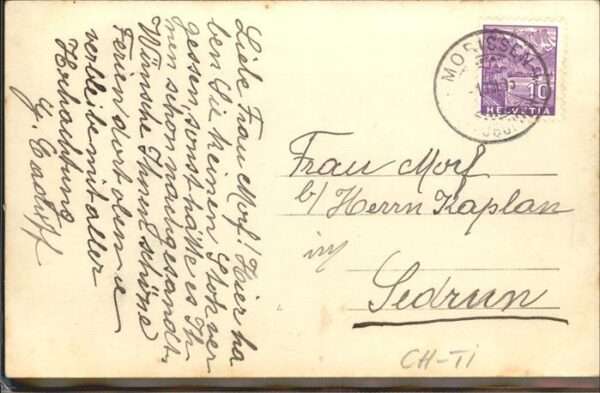 Liebe Frau Morf! Hier ha
ben Sie keinen Stok ver
gessen, sonst hätte es Ih
nen schon nachgesandt.
Wünsche Ihnen schöne
Ferien dort oben e
verbleibe mit aller
Hochachtung
MORISSEN
10
HELVETIA
Frau Morf
b/ Herrn Kaplan
in
Sedrun
CH-TI